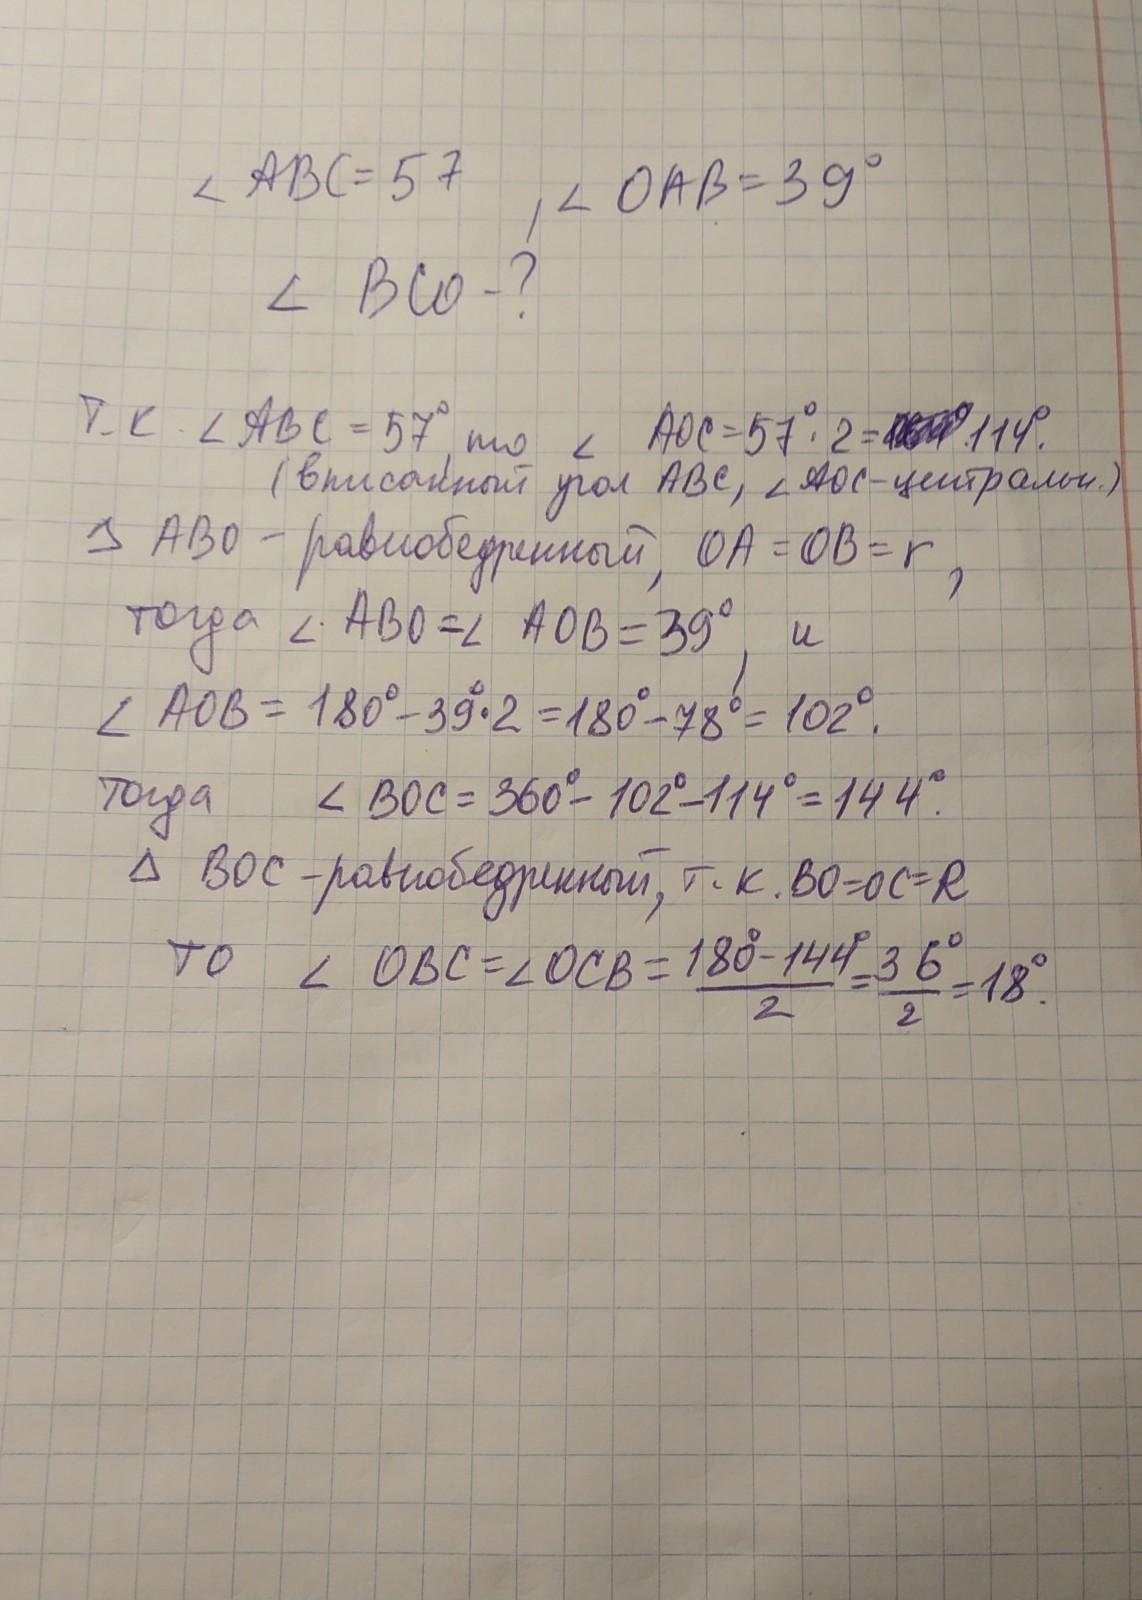 ∠ ABC = 57 , ∠ OAB = 39°
∠ BCO - ?
Т.К. ∠ABC = 57°, то ∠ AOC = 57° · 2 = 114°.
(вписанный угол ABC, ∠AOC - центральн.)
ABO - равнобедренный, OA = OB = r,
тогда ∠ ABO = ∠ AOB = 39°, и
∠ AOB = 180° - 39° · 2 = 180° - 78° = 102°.
Тогда ∠ BOC = 360° - 102° - 114° = 144°.
Δ BOC - равнобедренный, т.к. BO = OC = R
ТО ∠ OBC = ∠OCB = (180° - 144°)/2 = 36°/2 = 18°.